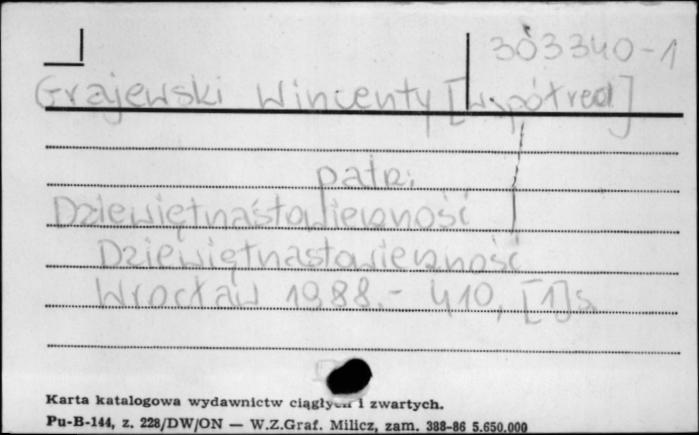 303340-1
Grajewski Wincenty [współred.]
patrz:
Dziewiętnastowieczność
Dziewiętnastowieczność
Wrocław 1988.- 410, [1] s.
Karta katalogowa wydawnictw ciągłych i zwartych.
Pu-B-144, z. 228/DW/ON — W.Z.Graf. Milicz, zam. 388-86 5.650.000